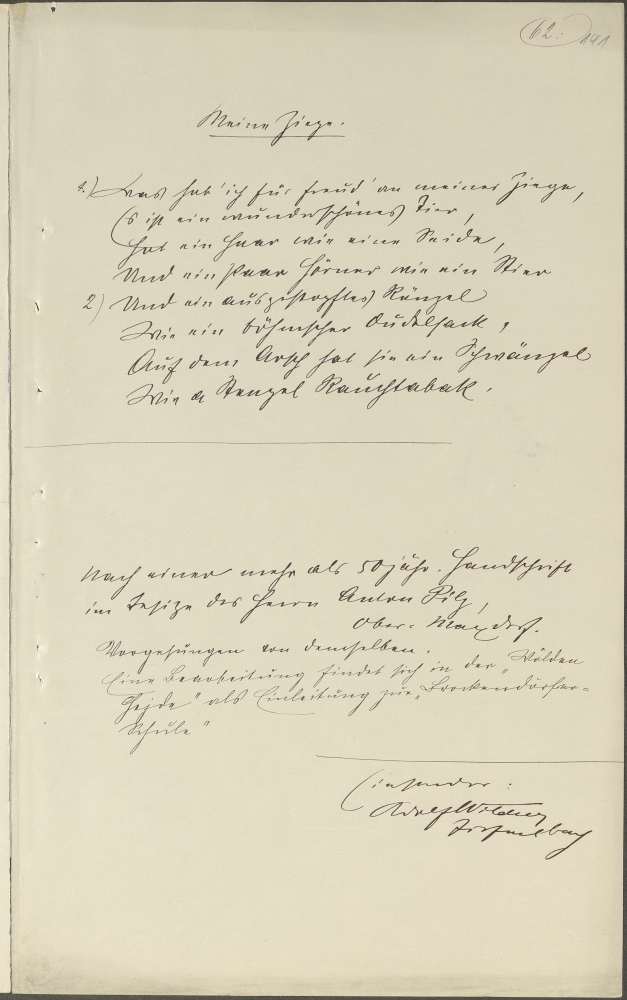 62. 141
Meine Ziege.
1.) Was hab' ich für Freud' an meiner Ziege,
Es ist ein wunderschönes Tier,
Hat ein Haar wie eine Seide,
Und ein Paar Hörner wie ein Stier
2) Und ein ausgestopftes Ränzel
Wie ein böhmscher Dudelsack,
Auf dem Arsch hat sie ein Schwänzel
Wie a Stengel Rauchtabak.
Nach einer mehr als 50 jähr. Handschrift
im Besitze des Herrn Anton Pilz,
Ober-Maxdorf.
Vorgesungen von demselben.
Eine Bearbeitung findet sich in der
als Einleitung zur
Schule"
Einsender:
Adolf